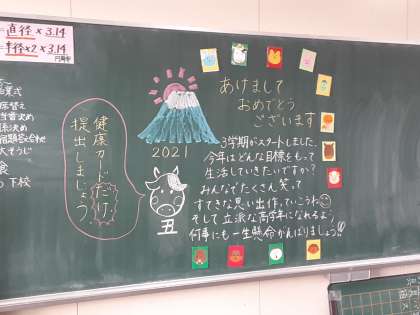 =直径×3.14
=半径×2×3.14
円周率
あけまして
おめでとう
ございます
3学期がスタートしました。
今年はどんな目標をもって
生活していきたいですか?
みんなでたくさん笑って
すてきな思い出作っていこうね
そして立派な高学年になれるよう、
何事にも一生懸命がんばりましょう!!
2021
丑
健康カードだけ、
提出しましょう。
席替え
大そうじ
下校